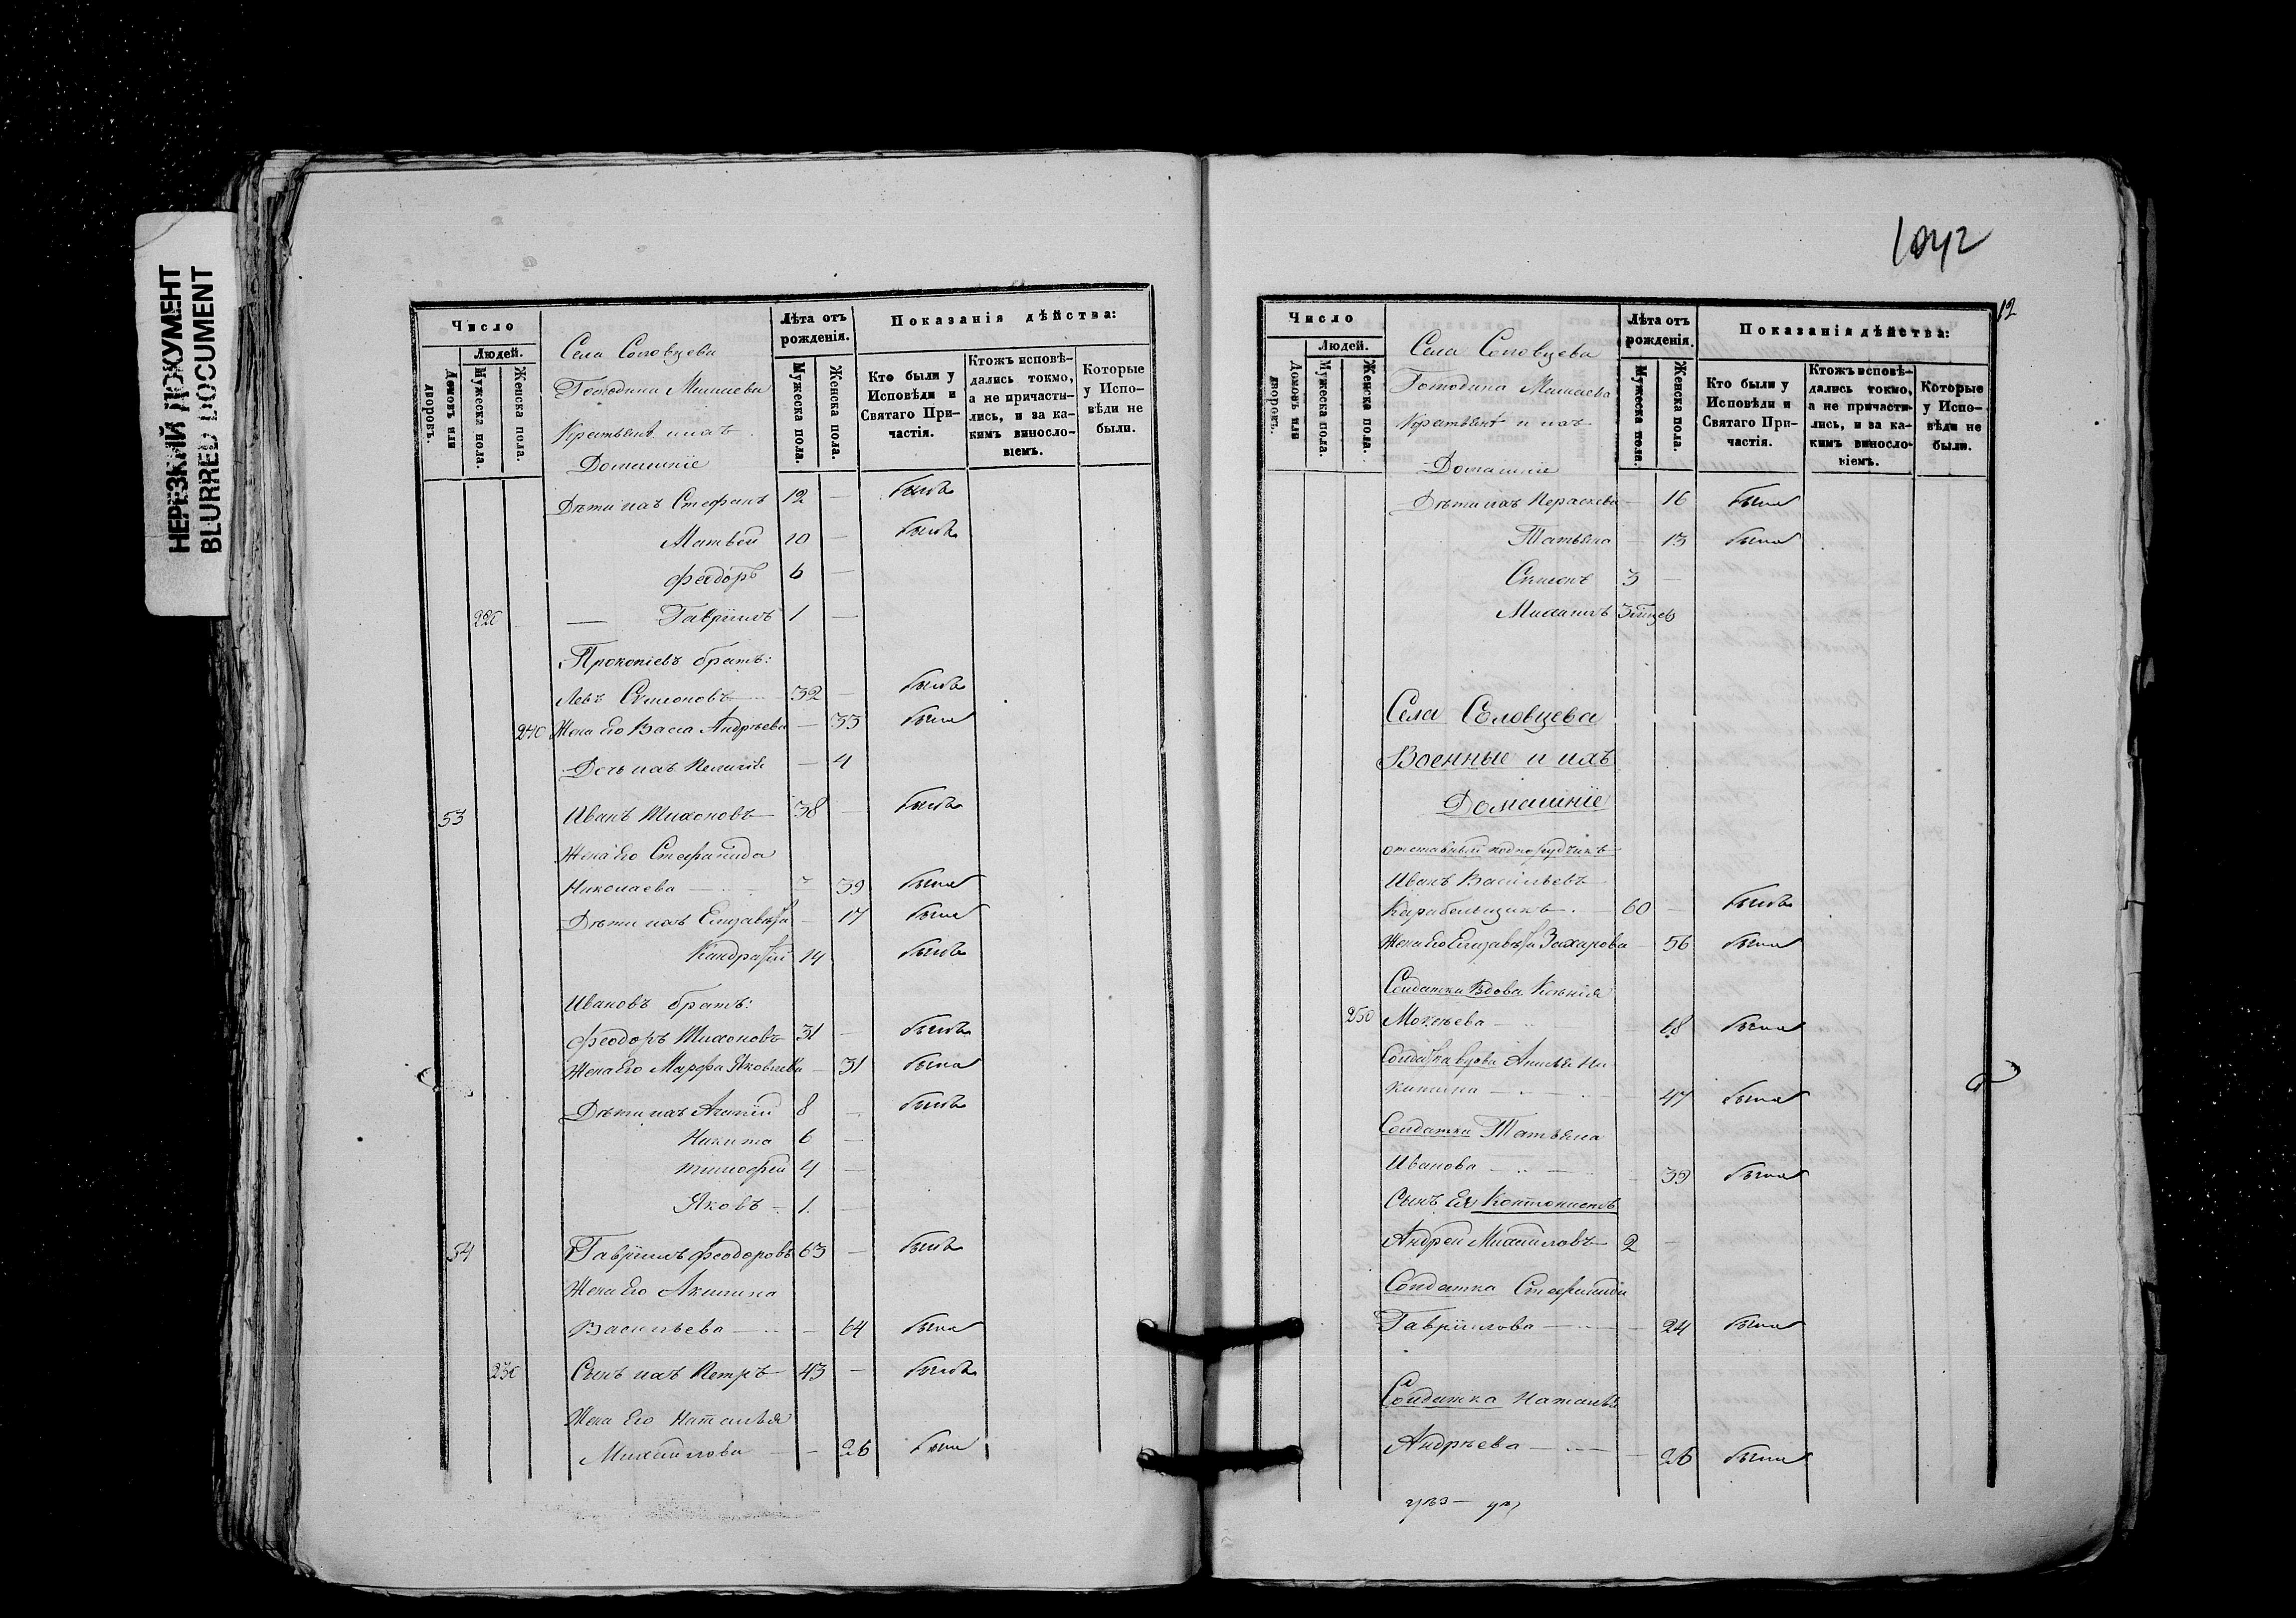 НЕРЕЗКИЙ ДОКУМЕНТ
BLURRED DOCUMENT
Число
Людей.
Домовъ или дворовъ.
Мужеска пола.
Женска пола.
Села Соловцева
Господина Минаева
Крестьяне и ихъ
Домашніе
Лѣта отъ рожденія.
Мужеска пола.
Женска пола.
Показанія дѣйства:
Кто были у Исповѣди и Святаго Причастія.
Ктожъ исповѣ-
дались токмо,
а не причасти-
лись, и за ка-
кимъ винosло-
віемъ.
Которые
у Испо-
вѣди не
были.
Дѣти ихъ Стефанъ 12 — былъ
Матвей 10 — былъ
Феодоръ 6 —
220 — Гавріилъ 1 —
Прокопіевъ братъ:
Левъ Симеоновъ 32 — былъ
240 Жена Его Васса Андрѣева — 33 была
Дочь ихъ Пелагія — 4
53 Иванъ Тихоновъ 38 — былъ
Жена Его Стефанида
Николаева — 39 была
Дѣти ихъ Елизавета — 17 была
Кандратій 14 былъ
Ивановъ братъ:
Феодоръ Тихоновъ 31 — былъ
Жена Его Марфа Яковлева — 31 была
Дѣти ихъ 8 — былъ
Никита 6 —
Тимофей 4 —
Яковъ 1 —
54 Гавріилъ Феодоровъ 63 — былъ
Жена Его Акилина
Васильева — 64 была
230 Сынъ ихъ Петръ 43 — былъ
Жена Его Наталья
Михайлова — 26 была
1042
12
Число
Людей.
Домовъ или дворовъ.
Мужеска пола.
Женска пола.
Села Соловцева
Господина Минаева
Крестьяне и ихъ
Домашніе
Лѣта отъ рожденія.
Мужеска пола.
Женска пола.
Показанія дѣйства:
Кто были у Исповѣди и Святаго Причастія.
Ктожъ исповѣ-
дались токмо,
а не причасти-
лись, и за ка-
кимъ виносло-
віемъ.
Которые
у Испо-
вѣди не
были.
Дѣти ихъ Параскева — 16 была
Татьяна — 13 была
Симеонъ 3 —
Михаилъ
Села Соловцева
Военные и ихъ
Домашніе
отставный подпорудчикъ
Иванъ Васильевъ
Карабельщикъ 60 — былъ
Жена Его Елизавета Захарова — 56 была
Солдатка Вдова Ксенія
250 Мокѣева — 68 была
Солдатка вдова Анисья Ни
китина — 47 была
Солдатка Татьяна
Иванова — 39 была
Сынъ Ея Кантонистъ
Андрей Михайловъ 2 —
Солдатка Стефанида
Гавріилова — 24 была
Солдатка Наталья
Андрѣева — 26 была